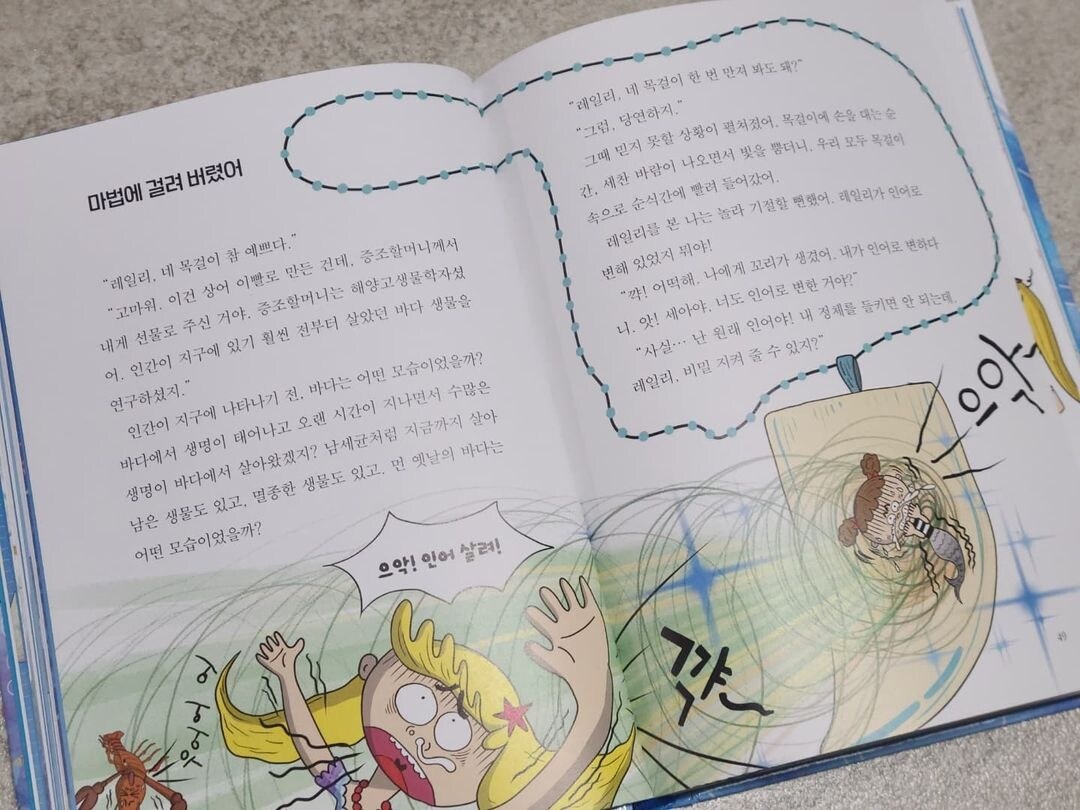 마법에 걸려 버렸어
“레일리, 네 목걸이 참 예쁘다.”
“고마워. 이건 상어 이빨로 만든 건데, 증조할머니께서
내게 선물로 주신 거야. 증조할머니는 해양고생물학자셨
어. 인간이 지구에 있기 훨씬 전부터 살았던 바다 생물을
연구하셨지.”
인간이 지구에 나타나기 전, 바다는 어떤 모습이었을까?
바다에서 생명이 태어나고 오랜 시간이 지나면서 수많은
생명이 바다에서 살아왔겠지? 남세균처럼 지금까지 살아
남은 생물도 있고, 멸종한 생물도 있고. 먼 옛날의 바다는
어떤 모습이었을까?
으악! 인어 살려!
우어어 어
“레일리, 네 목걸이 한 번 만져 봐도 돼?”
“그럼, 당연하지.”
그때 믿지 못할 상황이 펼쳐졌어. 목걸이에 손을 대는 순
간, 세찬 바람이 나오면서 빛을 뿜더니, 우리 모두 목걸이
속으로 순식간에 빨려 들어갔어.
레일리를 본 나는 놀라 기절할 뻔했어. 레일리가 인어로
변해 있었지 뭐야!
“꺅! 어떡해, 나에게 꼬리가 생겼어. 내가 인어로 변하다
니. 앗! 세아야, 너도 인어로 변한 거야?”
“사실… 난 원래 인어야! 내 정체를 들키면 안 되는데.
레일리, 비밀 지켜 줄 수 있지?”
으악~
꺅~
49